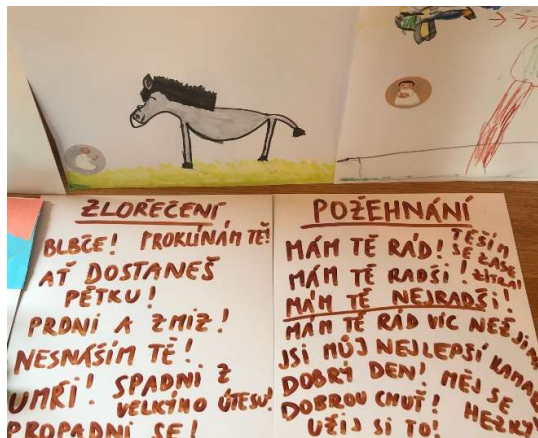 ZLOŘEČENÍ
BLBČE! PROKLÍNÁM TĚ!
AŤ DOSTANEŠ
PĚTKU!
PRDNI A ZMIZ!
NESNÁŠÍM TĚ!
UMŘI! SPADNI Z
VELKÝHO ÚTESU!
PROPADNI SE!
POŽEHNÁNÍ
MÁM TĚ RÁD! TĚŠÍM
SE ZASE
ZÍTRA!
MÁM TĚ RADŠI!
MÁM TĚ NEJRADŠI!
MÁM TĚ RÁD VÍC NEŽ
JSI MŮJ NEJLEPŠÍ
DOBRÝ DEN! MĚJ SE
HEZKY
DOBROU CHUŤ!
UŽIJ SI TO!